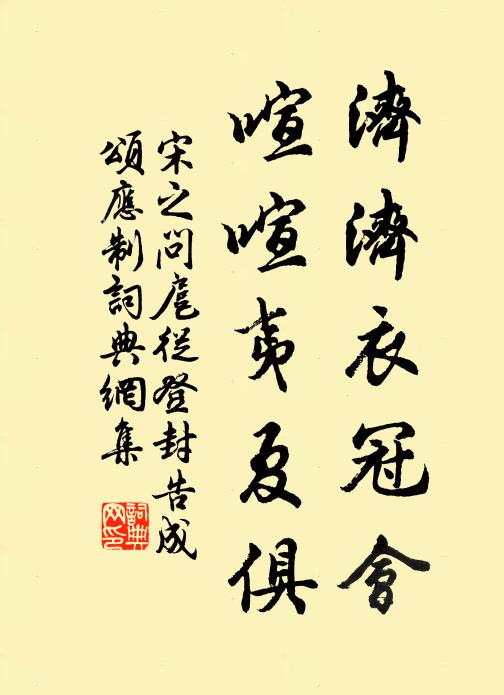 濟濟衣冠會
喧喧夷夏俱
宋之問扈從登封告成
頌應制詞典網集
詞典
网印